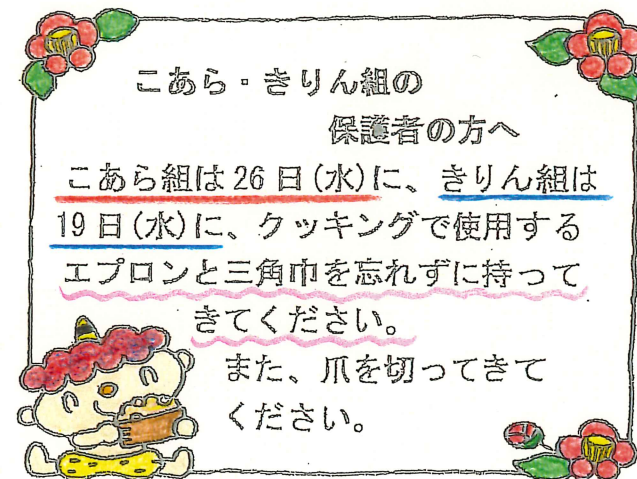 こあら・きりん組の
保護者の方へ
こあら組は26日(水)に、きりん組は
19日(水)に、クッキングで使用する
エプロンと三角巾を忘れずに持って
きてください。
また、爪を切ってきて
ください。